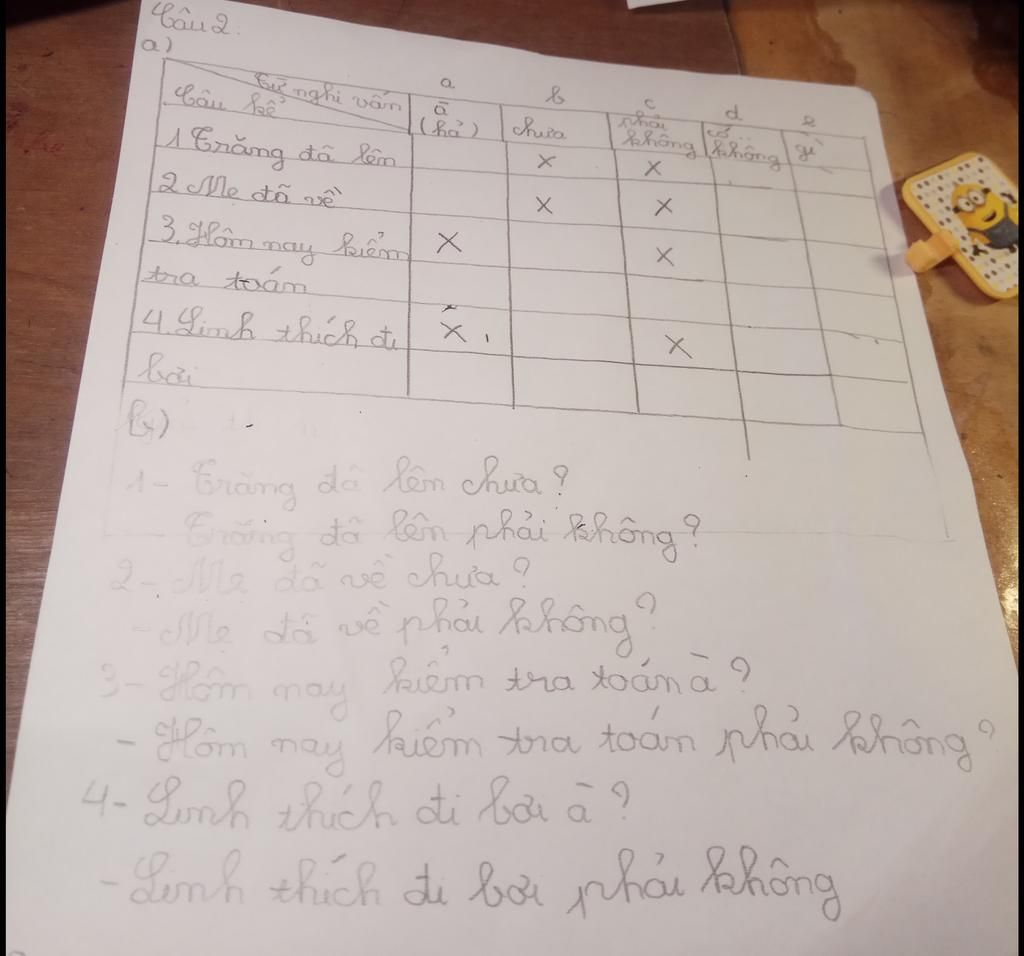 Câu 2.
a)
a b c d e
Từ nghi vấn
Câu kể
à
(hả)
chưa
phải
không
có
không
gì
1 Trăng đã lên x x
2 Mẹ đã về x x
3. Hôm nay kiểm x x
tra toán
4. Linh thích đi x x
bơi
b)
1- Trăng đã lên chưa?
- Trăng đã lên phải không?
2- Mẹ đã về chưa?
- Mẹ đã về phải không?
3- Hôm nay kiểm tra toán à?
- Hôm nay kiểm tra toán phải không?
4- Linh thích đi bơi à?
- Linh thích đi bơi phải không